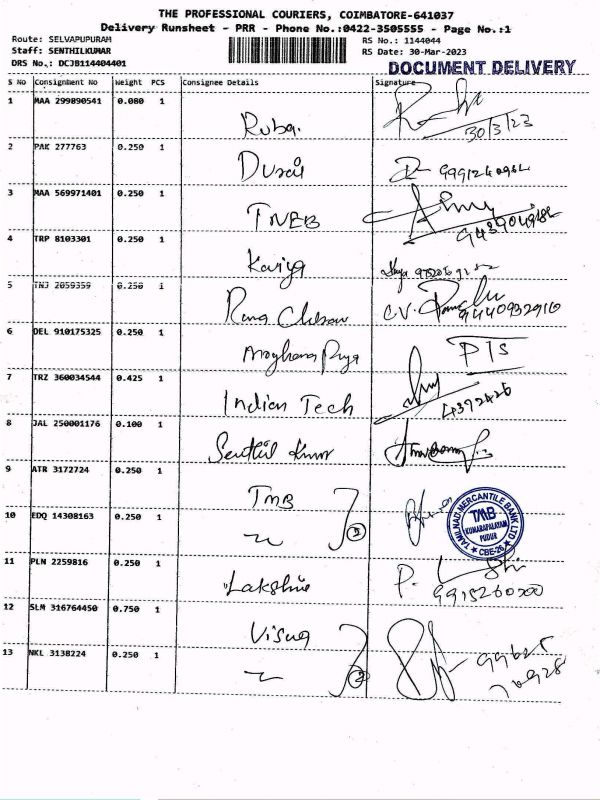 THE PROFESSIONAL COURIERS, COIMBATORE-641037
Delivery Runsheet - PRR - Phone No.:0422-3505555 - Page No.:1
Route: SELVAPUPURAM RS No.: 1144044
Staff: SENTHILKUMAR RS Date: 30-Mar-2023
DRS No.: DCJB114404401 DOCUMENT DELIVERY
S No Consignment No Weight PCS Consignee Details Signature
1 MAA 299890541 0.080 1
Ruba. 30/3/23
2 PAK 277763 0.250 1
Durai
3 MAA 569971401 0.250 1
TNEB
4 TRP 8103301 0.250 1
Kaviya
5 TNJ 2059359 0.250 1
C.V. 9440932910
6 DEL 910175325 0.250 1
Priya PTS
7 TRZ 360034544 0.425 1
Indian Tech 4372426
8 JAL 250001176 0.100 1
Senthil Kumar
9 ATR 3172724 0.250 1
TMB 2
10 EDQ 14308163 0.250 1
TAMILNAD MERCANTILE BANK LTD
TMB
KUMARAPALAYAM
PUDUR
CBE-26
11 PLN 2259816 0.250 1
P.
12 SLM 316764450 0.750 1
Visua 2
13 NKL 3138224 0.250 1